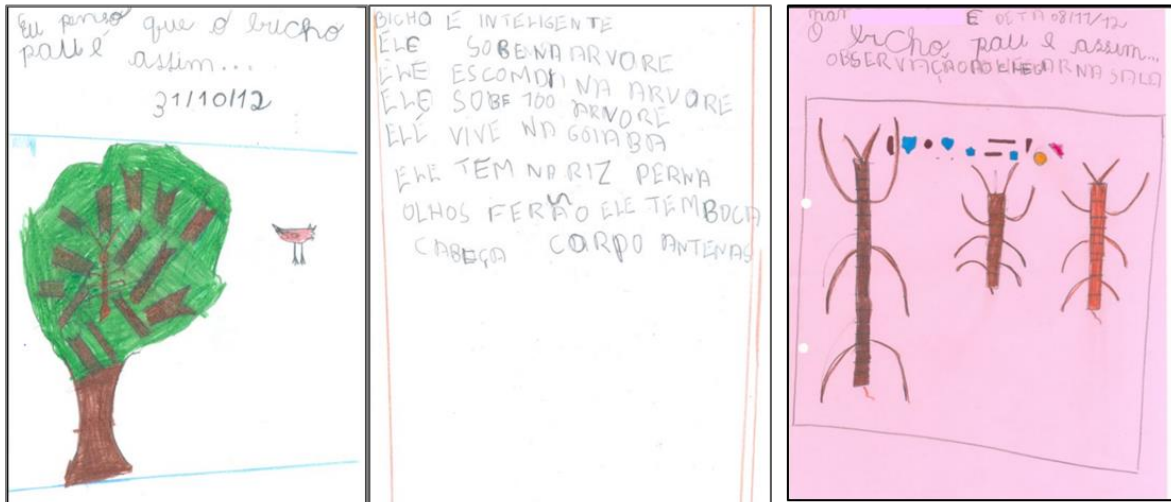 Eu penso que o bicho
pau é assim...
31/10/12
BICHO E INTELIGENTE
ELE SOBE NA ARVORE
ELE ESCOMDI NA ARVORE
ELE SOBE 100 ARVORE
ELE VIVE NA GOIABA
ELE TEM NARIZ PERNA
OLHOS FERÃO ELE TEM BOCA
CABEÇA CORPO ANTENAS
08/11/12
O bicho pau é assim...
OBSERVAÇÃO AO CHEGAR NA SALA